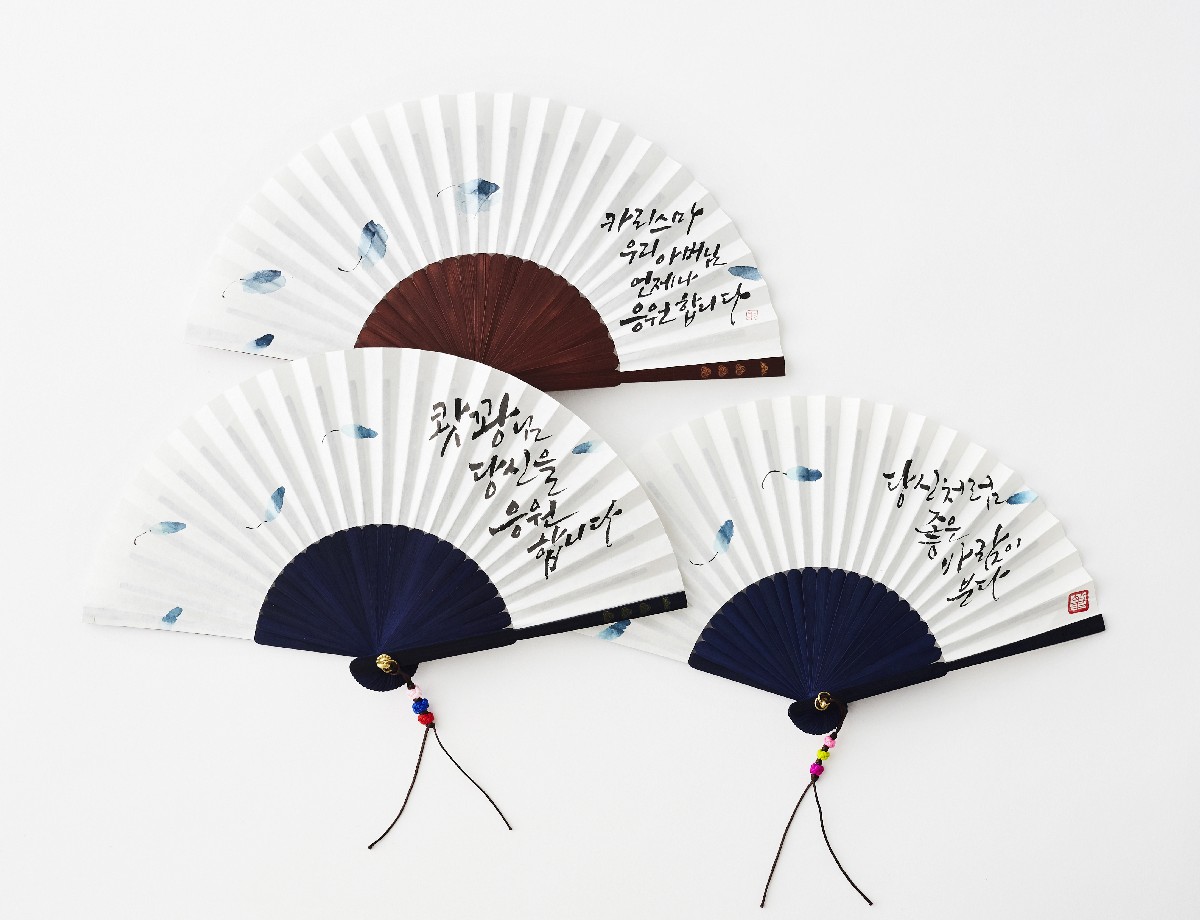 카리스마
우리 아버님
언제나
응원합니다
쾃쾅님
당신을
응원
합니다
당신처럼
좋은
바람이
분다